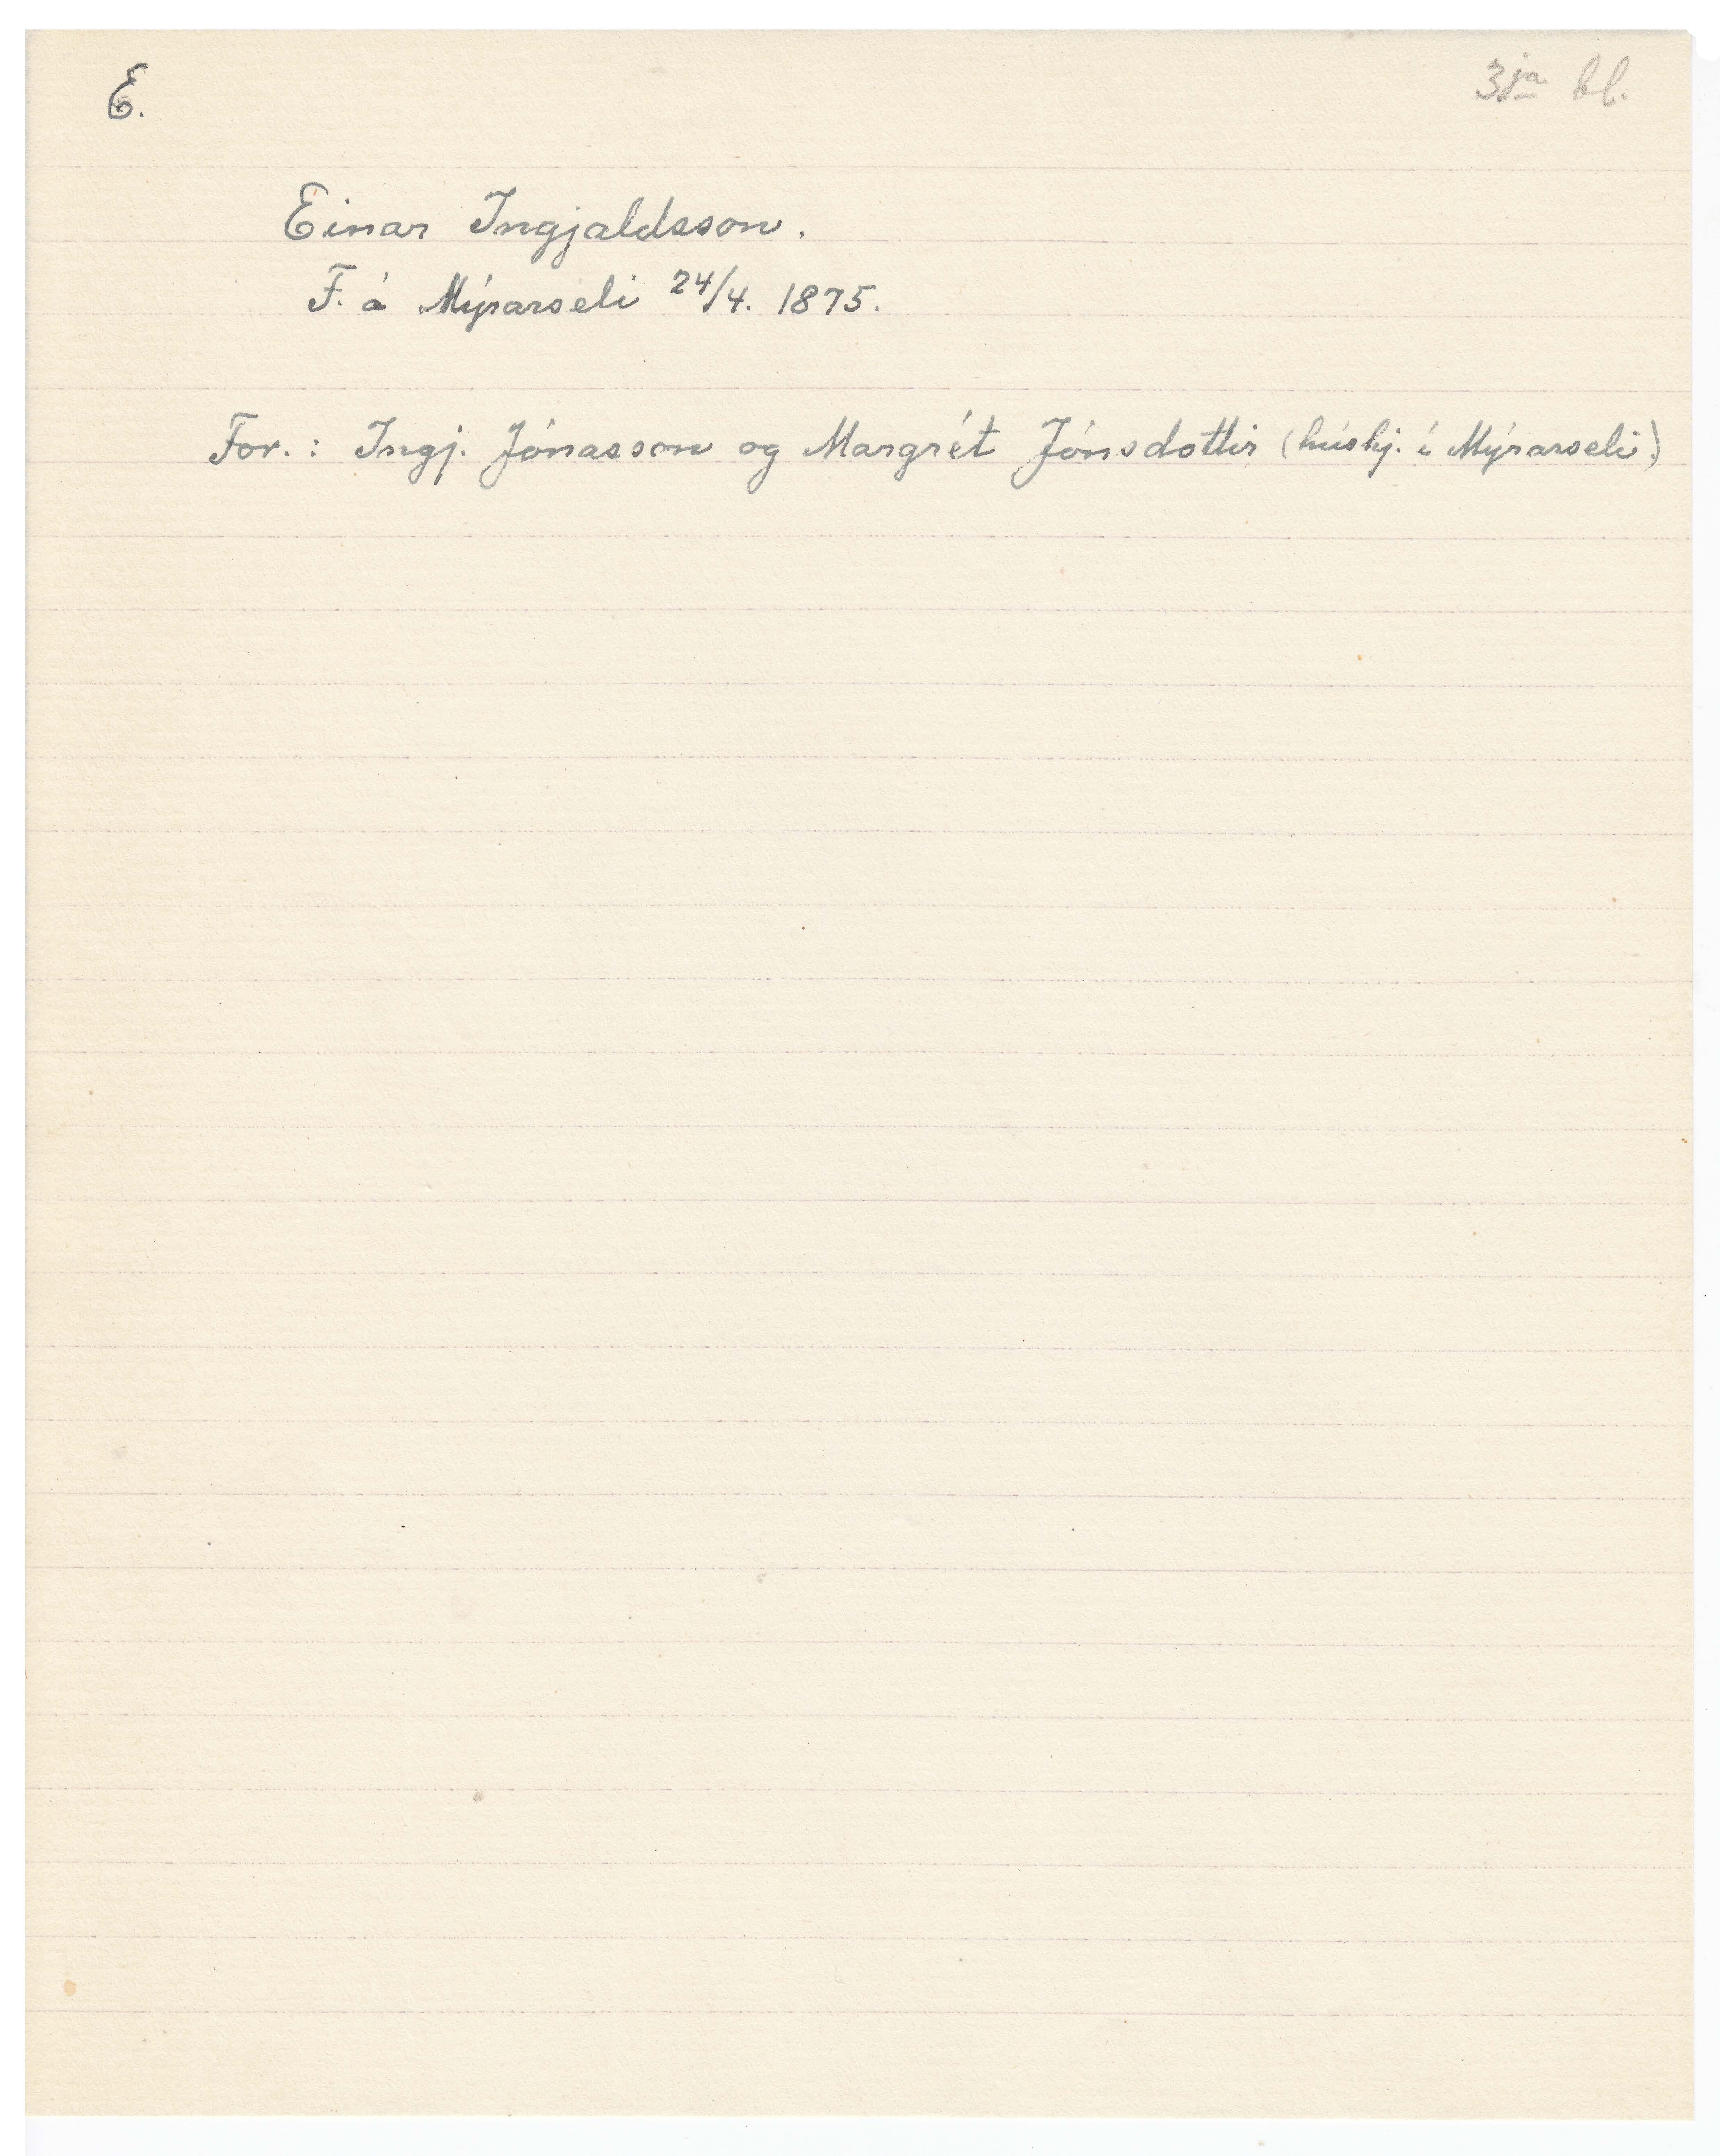 E.
3ja bl.
Einar Ingjaldsson.
F. á Mýrarseli 24/4. 1875.
For.: Ingj. Jónasson og Margrét Jónsdottir (húshj. í Mýrarseli)